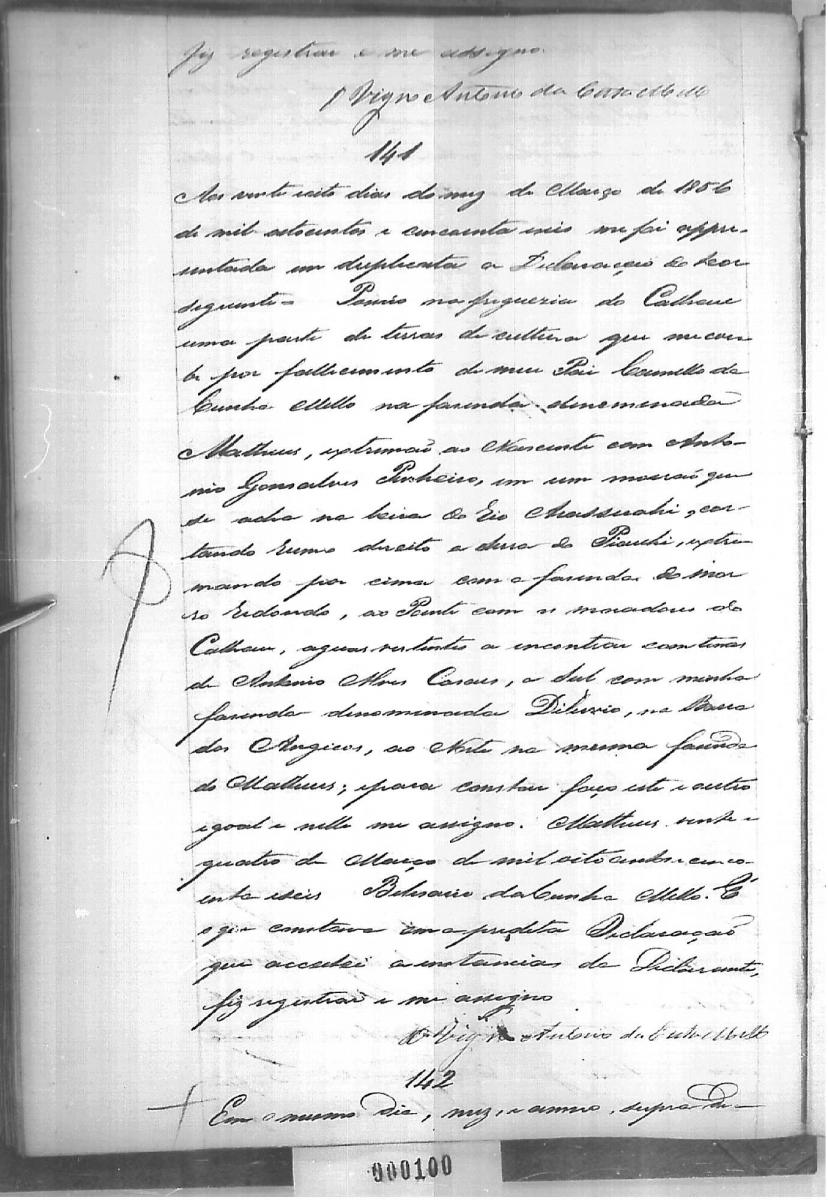 fiz registrar e me assigno.
O Vigro Antonio da Costa Mello
141
Aos vinte oito dias do mez de Março de 1856
de mil oitocentos e cincoenta e seis me foi appre-
sentada em duplicata a Declaração do teor
seguinte = Possuo na freguezia do Calhau
uma parte de terras de cultura que me cou-
be por fallecimento de meu Pai Camillo da
Cunha Mello na fazenda denomenada
Matheus, extremão ao Nascente com Anto-
nio Gonsalves Pinheiro, em um mourão que
se acha na beira do Rio Arassuahi, cor-
tando rumo direito a serra do Piauhi, extre-
mando por cima com a fazenda do Mor-
ro Redondo, ao Poente com os moradores do
Calhau, aguas vertentes a encontrar com terras
de Antonio Alves , a Sul com minha
fazenda denomenada Diluvio, na Barra
dos Angicos, ao Norte na mesma fazenda
do Matheus; e para constar faço este e outro
egoal e nelle me assigno. Matheus vinte e
quatro de Março de mil oitocentos e cinco-
enta e seis Belisario da Cunha Mello. É
o que constava em a predita Declaração
que acceitei a instancias do Declarante,
fiz registrar e me assigno
O Vigro Antonio da Costa Mello
142
Em o mesmo dia, mez, e anno, supra de-
000100